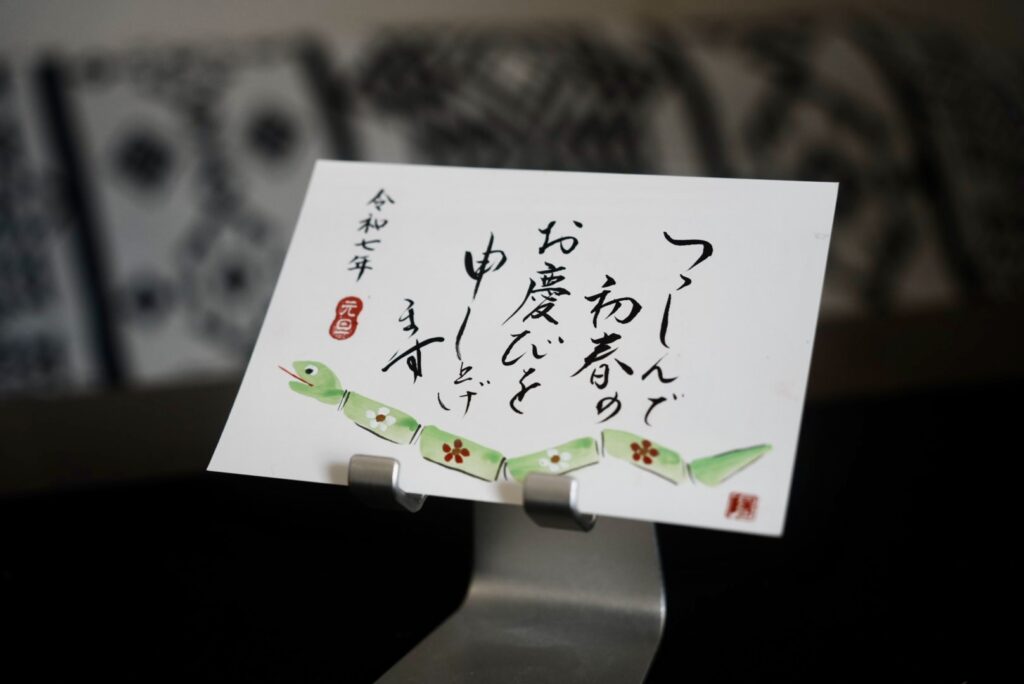 つゝしんで
初春の
お慶びを
申し上げ
ます
令和七年
元旦